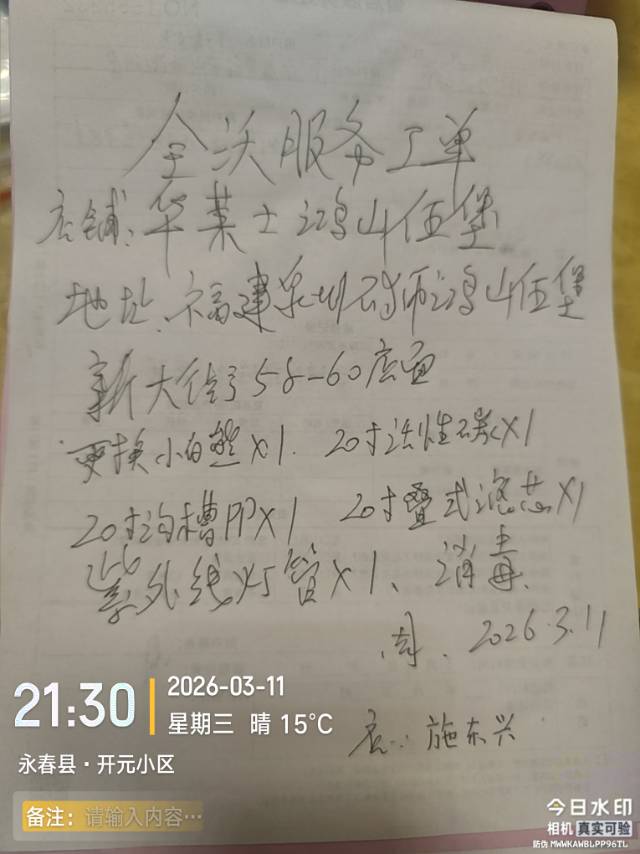 全沃服务工单
店铺:华莱士鸿山伍堡
地址:福建泉州石狮鸿山伍堡
新大街58-60店面
更换小白熊x1. 20寸活性碳x1
20寸沟槽PPx1 20寸叠式滤芯x1
紫外线灯管x1、消毒.
周. 2026.3.11
店: 施东兴
21:30
2026-03-11
星期三 晴 15℃
永春县·开元小区
备注: 请输入内容…
今日水印
相机 真实可验
防伪 MWWKAWBLPP96TL